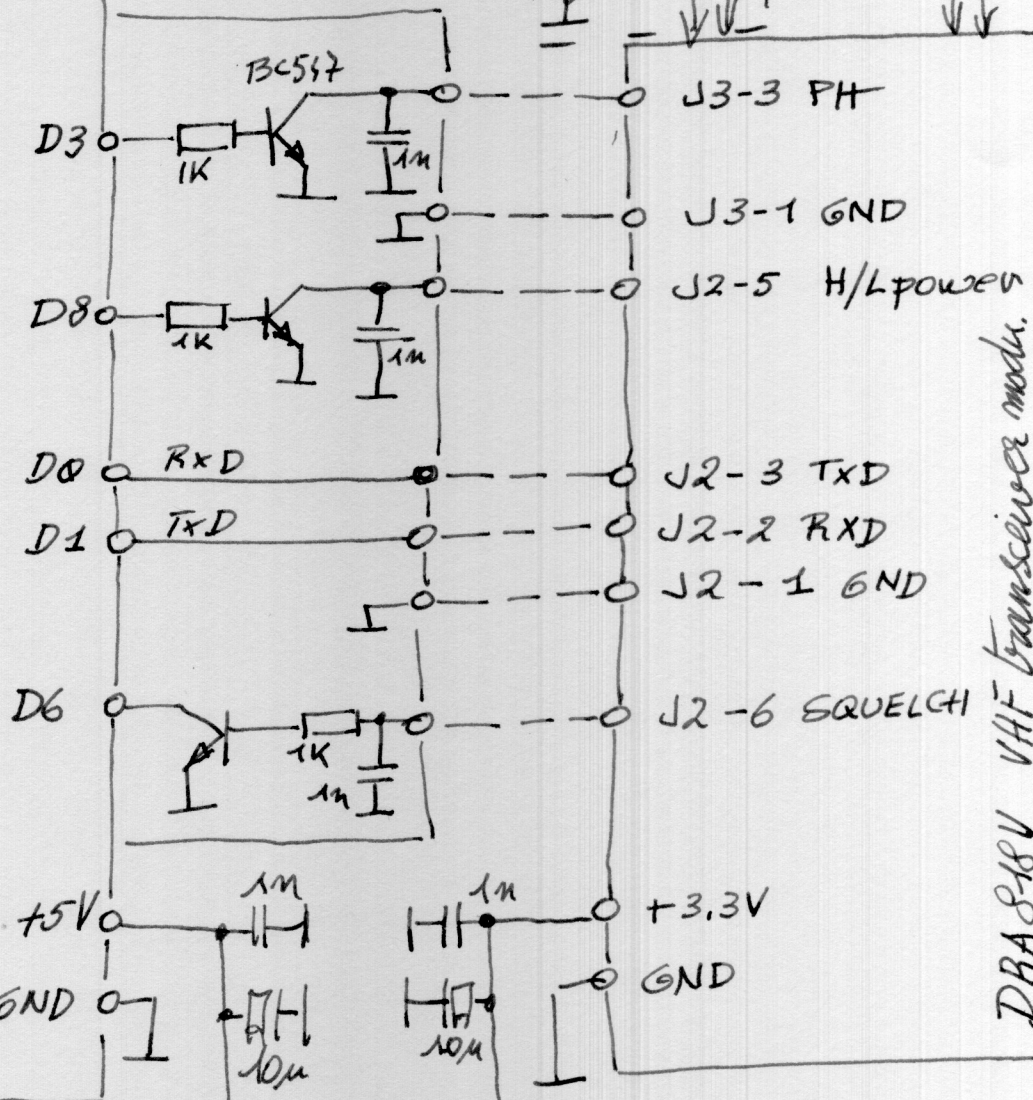 BC547
D3 1K 1n J3-3 PH
J3-1 GND
D8 1K 1n J2-5 H/Lpower
D0 RxD J2-3 TxD
D1 TxD J2-2 RXD
J2-1 GND
D6 1K 1n J2-6 SQUELCH
+5V 1n 1n +3.3V
GND 10µ 10µ GND
DRA818V VHF transceiver modu.